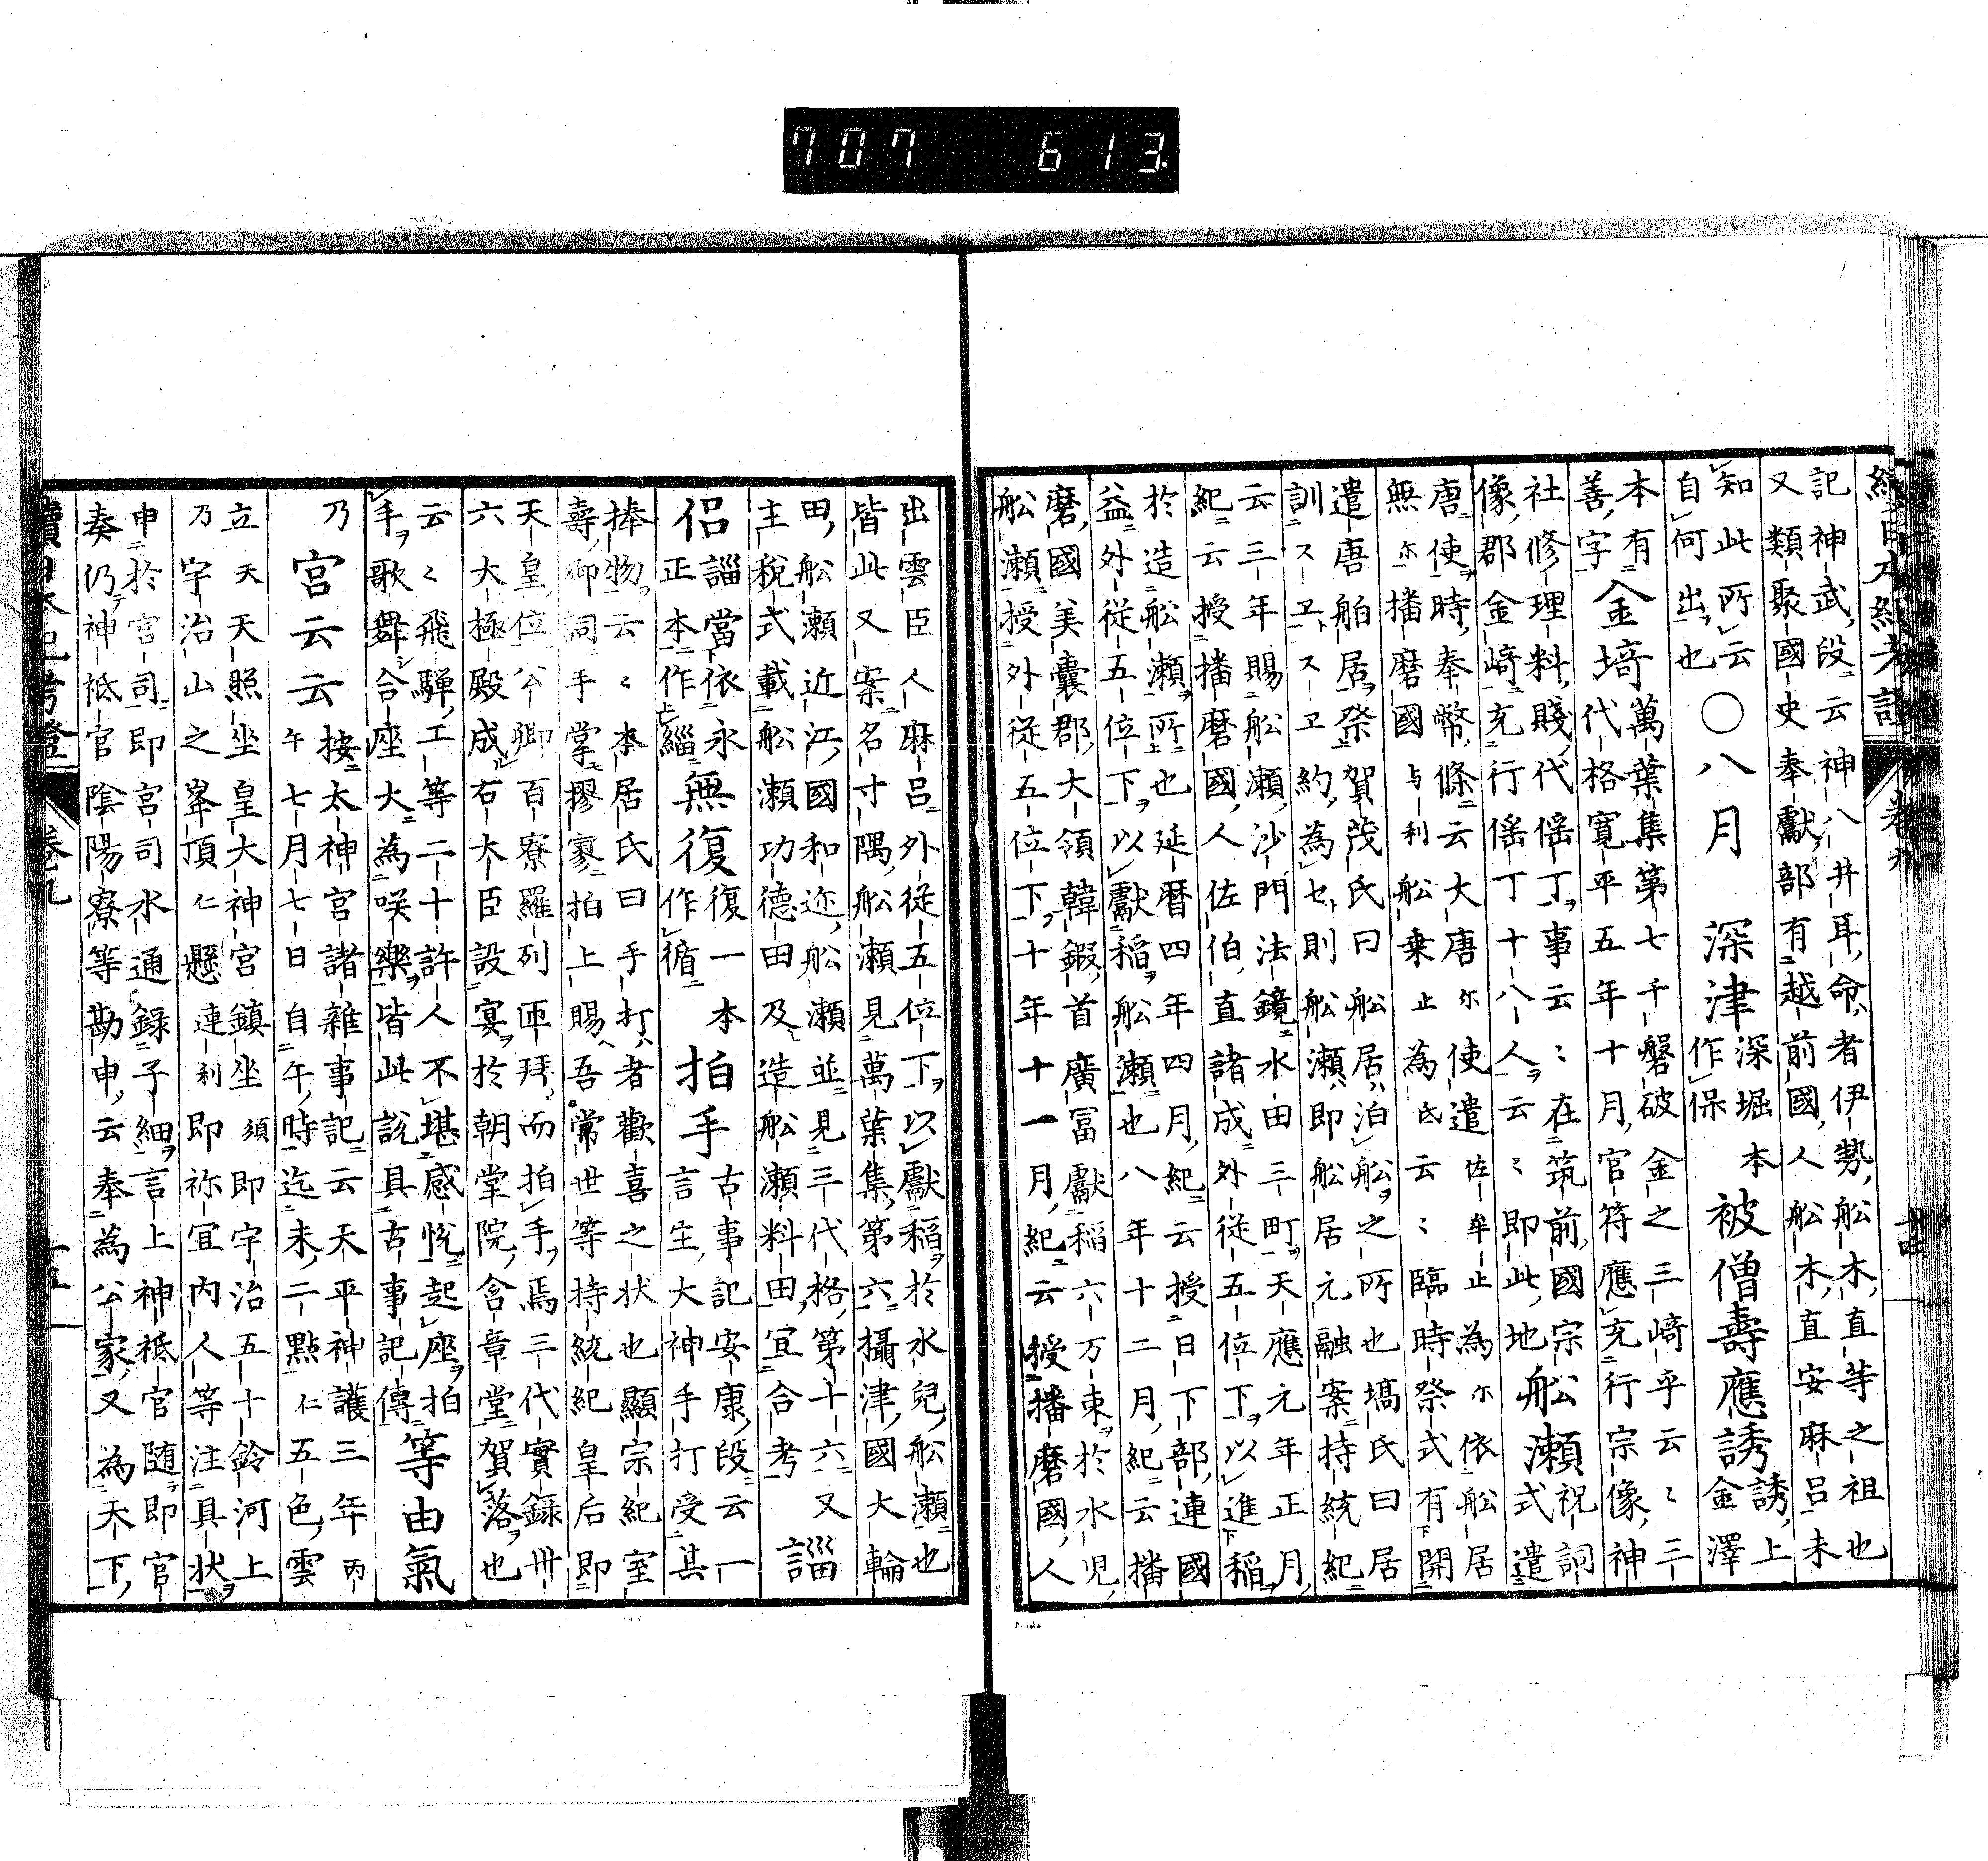 707 613
續日本紀考證 卷九 十四
記神武段云神八井耳命者伊勢舩木直等之祖也
又類聚國史奉獻部有越前國人舩木直安麻呂未
知此所云
自何出也
〇八月 深津
深堀本
作保
被僧壽應誘
誘上
金澤
本有
善字
金埼
萬葉集第七千磐破金之三﨑乎云〻三
代格寛平五年十月官符應充行宗像神
社修理料賤代徭丁事云〻在筑前國宗
像郡金﨑充行徭丁十八人云〻即此地
舩瀬
祝詞
式遣
唐使時奉幣條云大唐尓使遣佐牟止為尓依舩居
無尓播磨國与利舩乗止為氐云〻臨時祭式有開
遣唐舶居祭賀茂氏曰舩居泊舩之所也塙氏曰居
訓スヱスヱ約為セ則舩瀬即舩居元融案持統紀
云三年賜舩瀬沙門法鏡水田三町天應元年正月
紀云授播磨國人佐伯直諸成外従五位下以進稲
於造舩瀬所也延暦四年四月紀云授日下部連國
益外従五位下以獻稲舩瀬也八年十二月紀云播
磨國美囊郡大領韓鍛首廣冨獻稲六万束於水児
舩瀬授外従五位下十年十一月紀云授播磨國人
出雲臣人麻呂外従五位下以獻稲於水兒舩瀬也
皆此又案名寸隅舩瀬見萬葉集第六攝津國大輪
田舩瀬近江國和迩舩瀬並見三代格第十六又
主税式載舩瀬功德田及造舩瀬料田宜合考
諨
侶
諨當依永
正本作緇
無復
復一本
作循
拍手
古事記安康段云一
言主大神手打受其
捧物云〻本居氏曰手打者歡喜之状也顯宗紀室
壽御詞手掌摎寥拍上賜吾常世等持統紀皇后即
天皇位公卿百寮羅列匝拜而拍手焉三代實録卅
六大極殿成右大臣設宴於朝堂院含章堂賀落也
云〻飛騨工等二十許人不堪感悅起座拍
手歌舞合座大為咲樂皆此說具古事記傳
等由氣
乃宮云云
按太神宮諸雜事記云天平神護三年丙
午七月七日自午時迄未二點仁五色雲
立天天照坐皇大神宮鎮坐須即宇治五十鈴河上
乃宇治山之峯頂仁懸連利即祢宜内人等注具状
申於宮司即宮司水通錄子細言上神祗官随即官
奏仍神祗官陰陽寮等勘申云奉為公家又為天下
續日本紀考證 卷九 十五